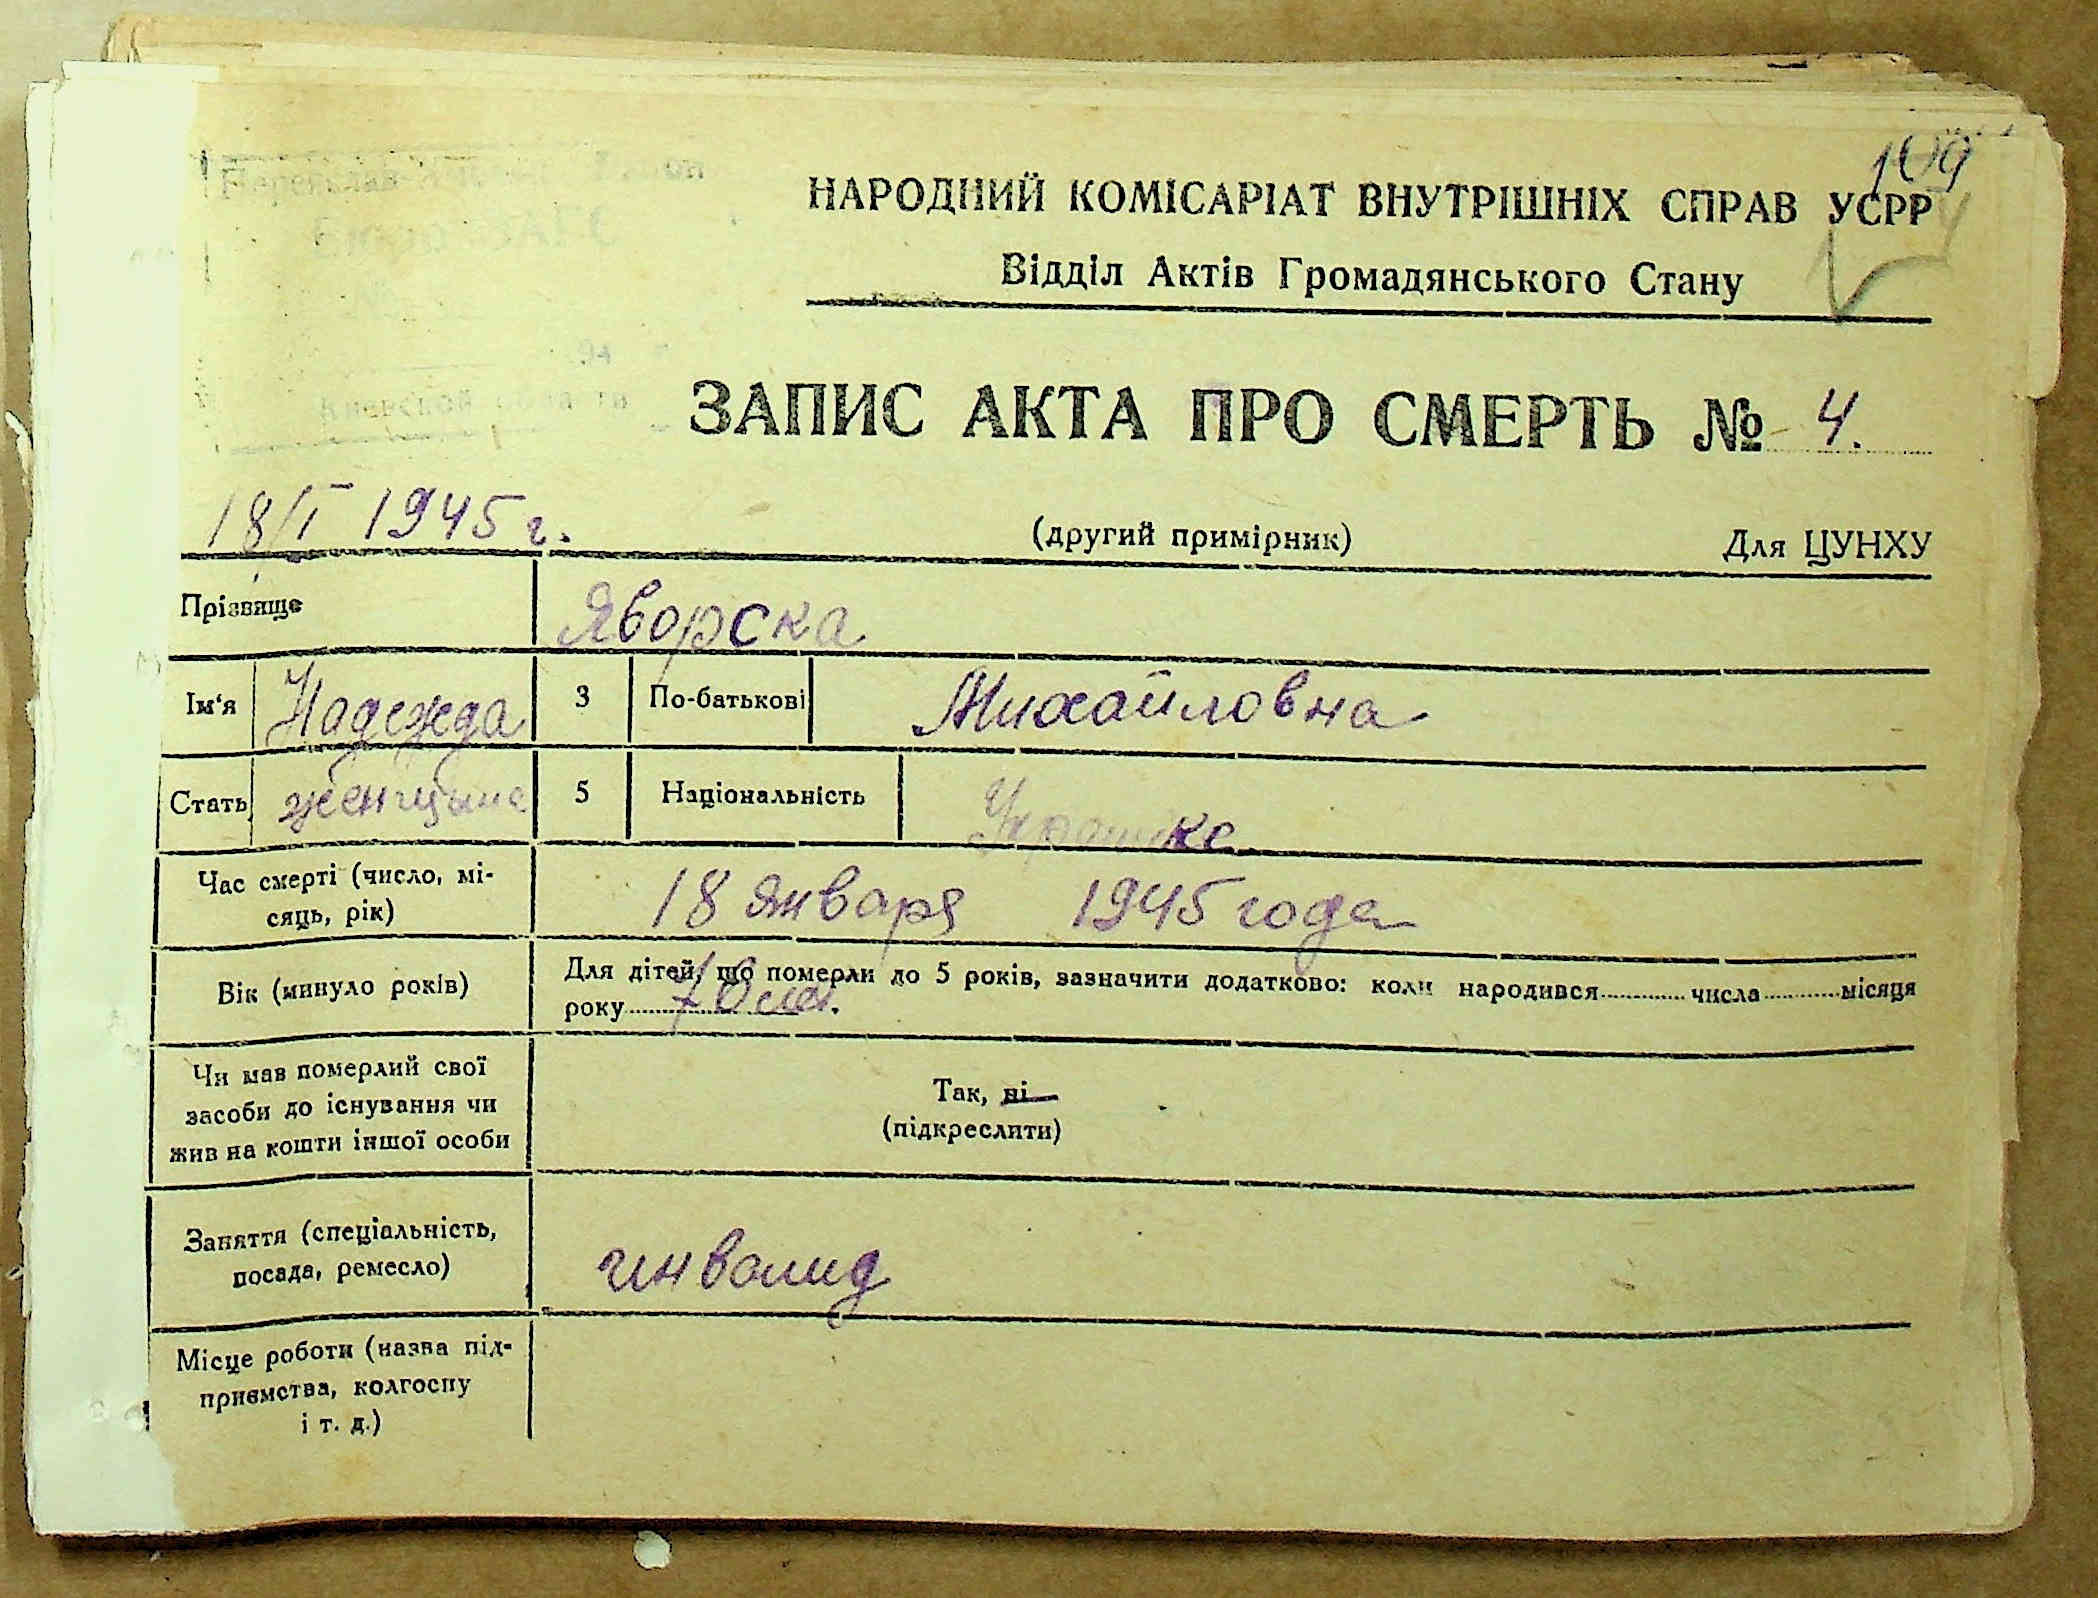 109
НАРОДНИЙ КОМІСАРІАТ ВНУТРІШНІХ СПРАВ УСРР
Відділ Актів Громадянського Стану
Бюро ЗАГС
194
Киевской области
ЗАПИС АКТА ПРО СМЕРТЬ № 4.
18/I 1945 г.
(другий примірник) Для ЦУНХУ
Прізвище Яворска
Ім‘я Надежда 3 По-батькові Михайловна
Стать женщына 5 Національність Украинка
Час смерті (число, мі-
сяць, рік) 18 января 1945 года
Вік (минуло років) Для дітей, що померли до 5 років, зазначити додатково: коли народився числа місяця
року 70 лет.
Чи мав померлий свої
засоби до існування чи
жив на кошти іншої особи
Так, ні
(підкреслити)
Заняття (спеціальність,
посада, ремесло) инвалид
Місце роботи (назва під-
приємства, колгоспу
і т. д.)